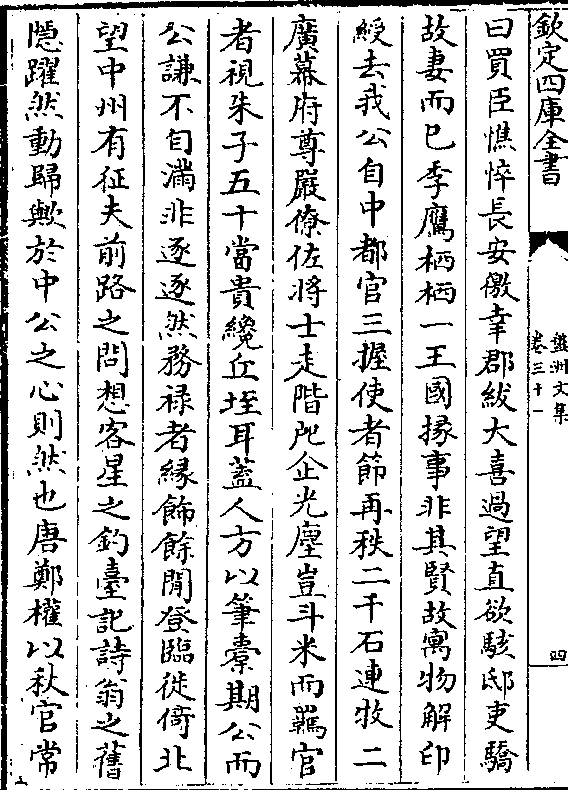 欽定四庫全書
盤洲文集
卷三十一
四
曰買臣憔悴長安徼幸郡紱大喜過望直欲駭邸吏驕
故妻而已季鷹栖栖一王國掾事非其賢故寓物解印
綬去我公自中都官三握使者節再秩二千石連牧二
廣幕府尊嚴僚佐將士走階戺企光塵豈斗米而羈官
者視朱子五十當貴纔丘垤耳蓋人方以筆橐期公而
公謙不自滿非逐逐然務禄者縁飾餘閒登臨徙倚北
望中州有征夫前路之問想客星之釣臺記詩翁之舊
隠躍然動歸歟於中公之心則然也唐鄭權以秋官常